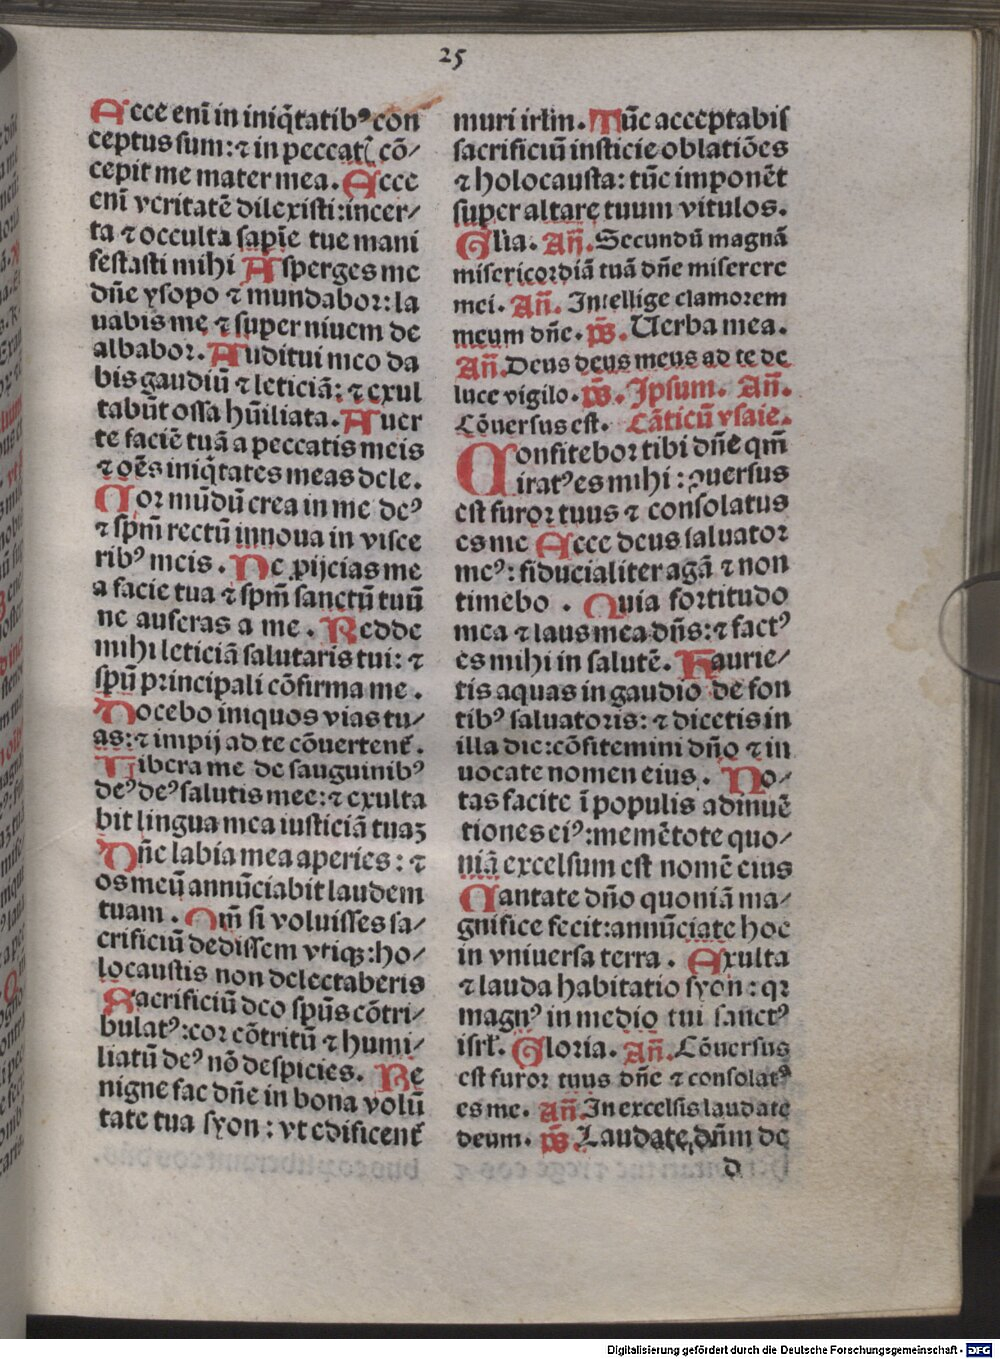 25
Ecce enī in iniq̄tatibꝰ con
ceptus sum: ⁊ in peccatı̄ cō⸗
cepit me mater mea. Ecce
enī veritatē dilexisti: incer⸗
ta ⁊ occulta sapīe tue mani
festasti mihi Asperges me
dn̄e ysopo ⁊ mundabor: la
uabis me ⁊ super niuem de
albabor. Auditui meo da
bis gaudiū ⁊ leticiā: ⁊ exul
tabūt ossa hūiliata. Auer
te faciē tuā a peccatis meis
⁊ oēs iniq̄tates meas dele.
Cor mūdū crea in me deꝰ
⁊ spm̄ rectū innoua in visce
ribꝰ meis. Ne ꝓijcias me
a facie tua ⁊ spm̄ sanctū tuū
ne auferas a me. Redde
mihi leticiā salutaris tui: ⁊
spū principali cōfirma me.
Docebo iniquos vias tu⸗
as: ⁊ impij ad te cōuertent̄.
Libera me de sanguinibꝰ
deꝰ deꝰ salutis mee: ⁊ exulta
bit lingua mea iusticiā tuaꝫ
Dn̄e labia mea aperies: ⁊
os meū annūciabit laudem
tuam. Qm̄ si voluisses sa⸗
crificiū dedissem vtiqꝫ: ho⸗
locaustis non delectaberis
Sacrificiū deo spūs cōtri⸗
bulatꝰ: cor cōtritū ⁊ humi⸗
liatū deꝰ nō despicies. Be
nigne fac dn̄e in bona volū
tate tua syon: vt edificent̄
muri irłm. Tūc acceptabis
sacrificiū insticie oblatiōes
⁊ holocausta: tūc imponēt
super altare tuum vitulos.
Glīa. Añ. Secundū magnā
misericordiā tuā dn̄e miserere
mei. Añ. Intellige clamorem
meum dn̄e. ps̄. Uerba mea.
Añ. Deus deus meus ad te de
luce vigilo. ps̄. Ipsum. Añ.
Cōuersus est. Cāticū ysaie.
Confitebor tibi dn̄e qm̄
iratꝰ es mihi: ꝯuersus
est furor tuus ⁊ consolatus
es me Ecce deus saluator
meꝰ: fiducialiter agā ⁊ non
timebo. Quia fortitudo
mea ⁊ laus mea dn̄s: ⁊ factꝰ
es mihi in salutē. Haurie⸗
tis aquas in gaudio de fon
tibꝰ saluatoris: ⁊ dicetis in
illa die: cōfitemini dn̄o ⁊ in
uocate nomen eius. No⸗
tas facite ī populis adinuē
tiones eiꝰ: memētote quo⸗
niā excelsum est nomē eius
Cantate dn̄o quoniā ma⸗
gnifice fecit: annūciate hoc
in vniuersa terra. Exulta
⁊ lauda habitatio syon: qꝛ
magnꝰ in medio tui sanctꝰ
isrł. Gloria. Añ. Cōuersus
est furor tuus dn̄e ⁊ consolatꝰ
es me. Añ. In excelsis laudate
deum. ps̄. Laudate dn̄m de
d
Digitalisierung gefördert durch die Deutsche Forschungsgemeinschaft - DFG